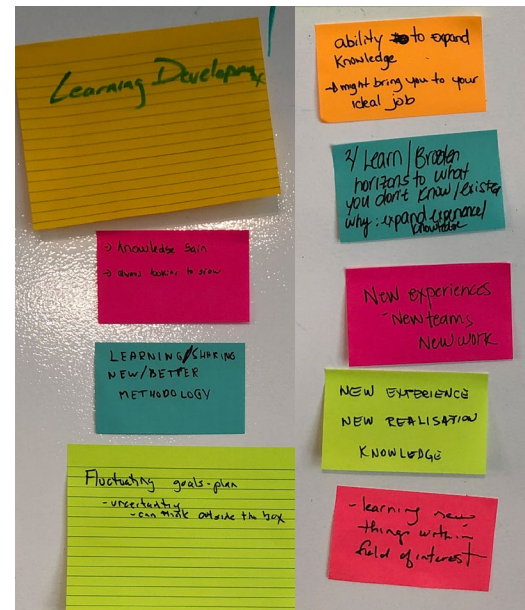 Learning Developmt
→ Knowledge gain
→ always looking to grow
LEARNING/SHARING
NEW/BETTER
METHODOLOGY
Fluctuating goals-plan
- uncertainty
- can think outside the box
ability to expand
Knowledge
→ might bring you to your
ideal job
2/ Learn/Broaden
horizons to what
you don't know/exists
why: expand experience/
knowledge
New experiences
- New teams
New work
NEW EXPERIENCE
NEW REALISATION
KNOWLEDGE
- learning new
things within
field of interest